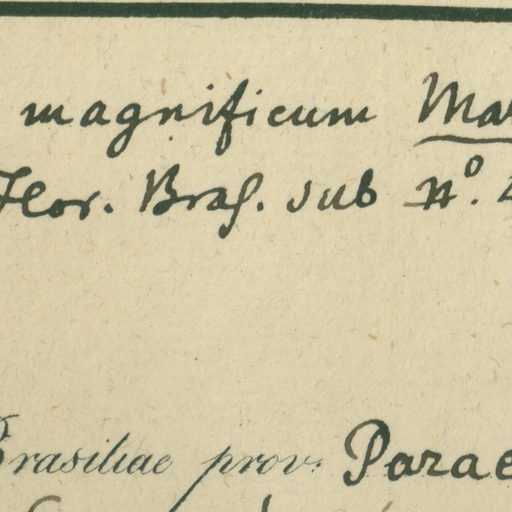 magnificum Mar
Flor. Bras. sub No.
Brasiliae prov. Parae